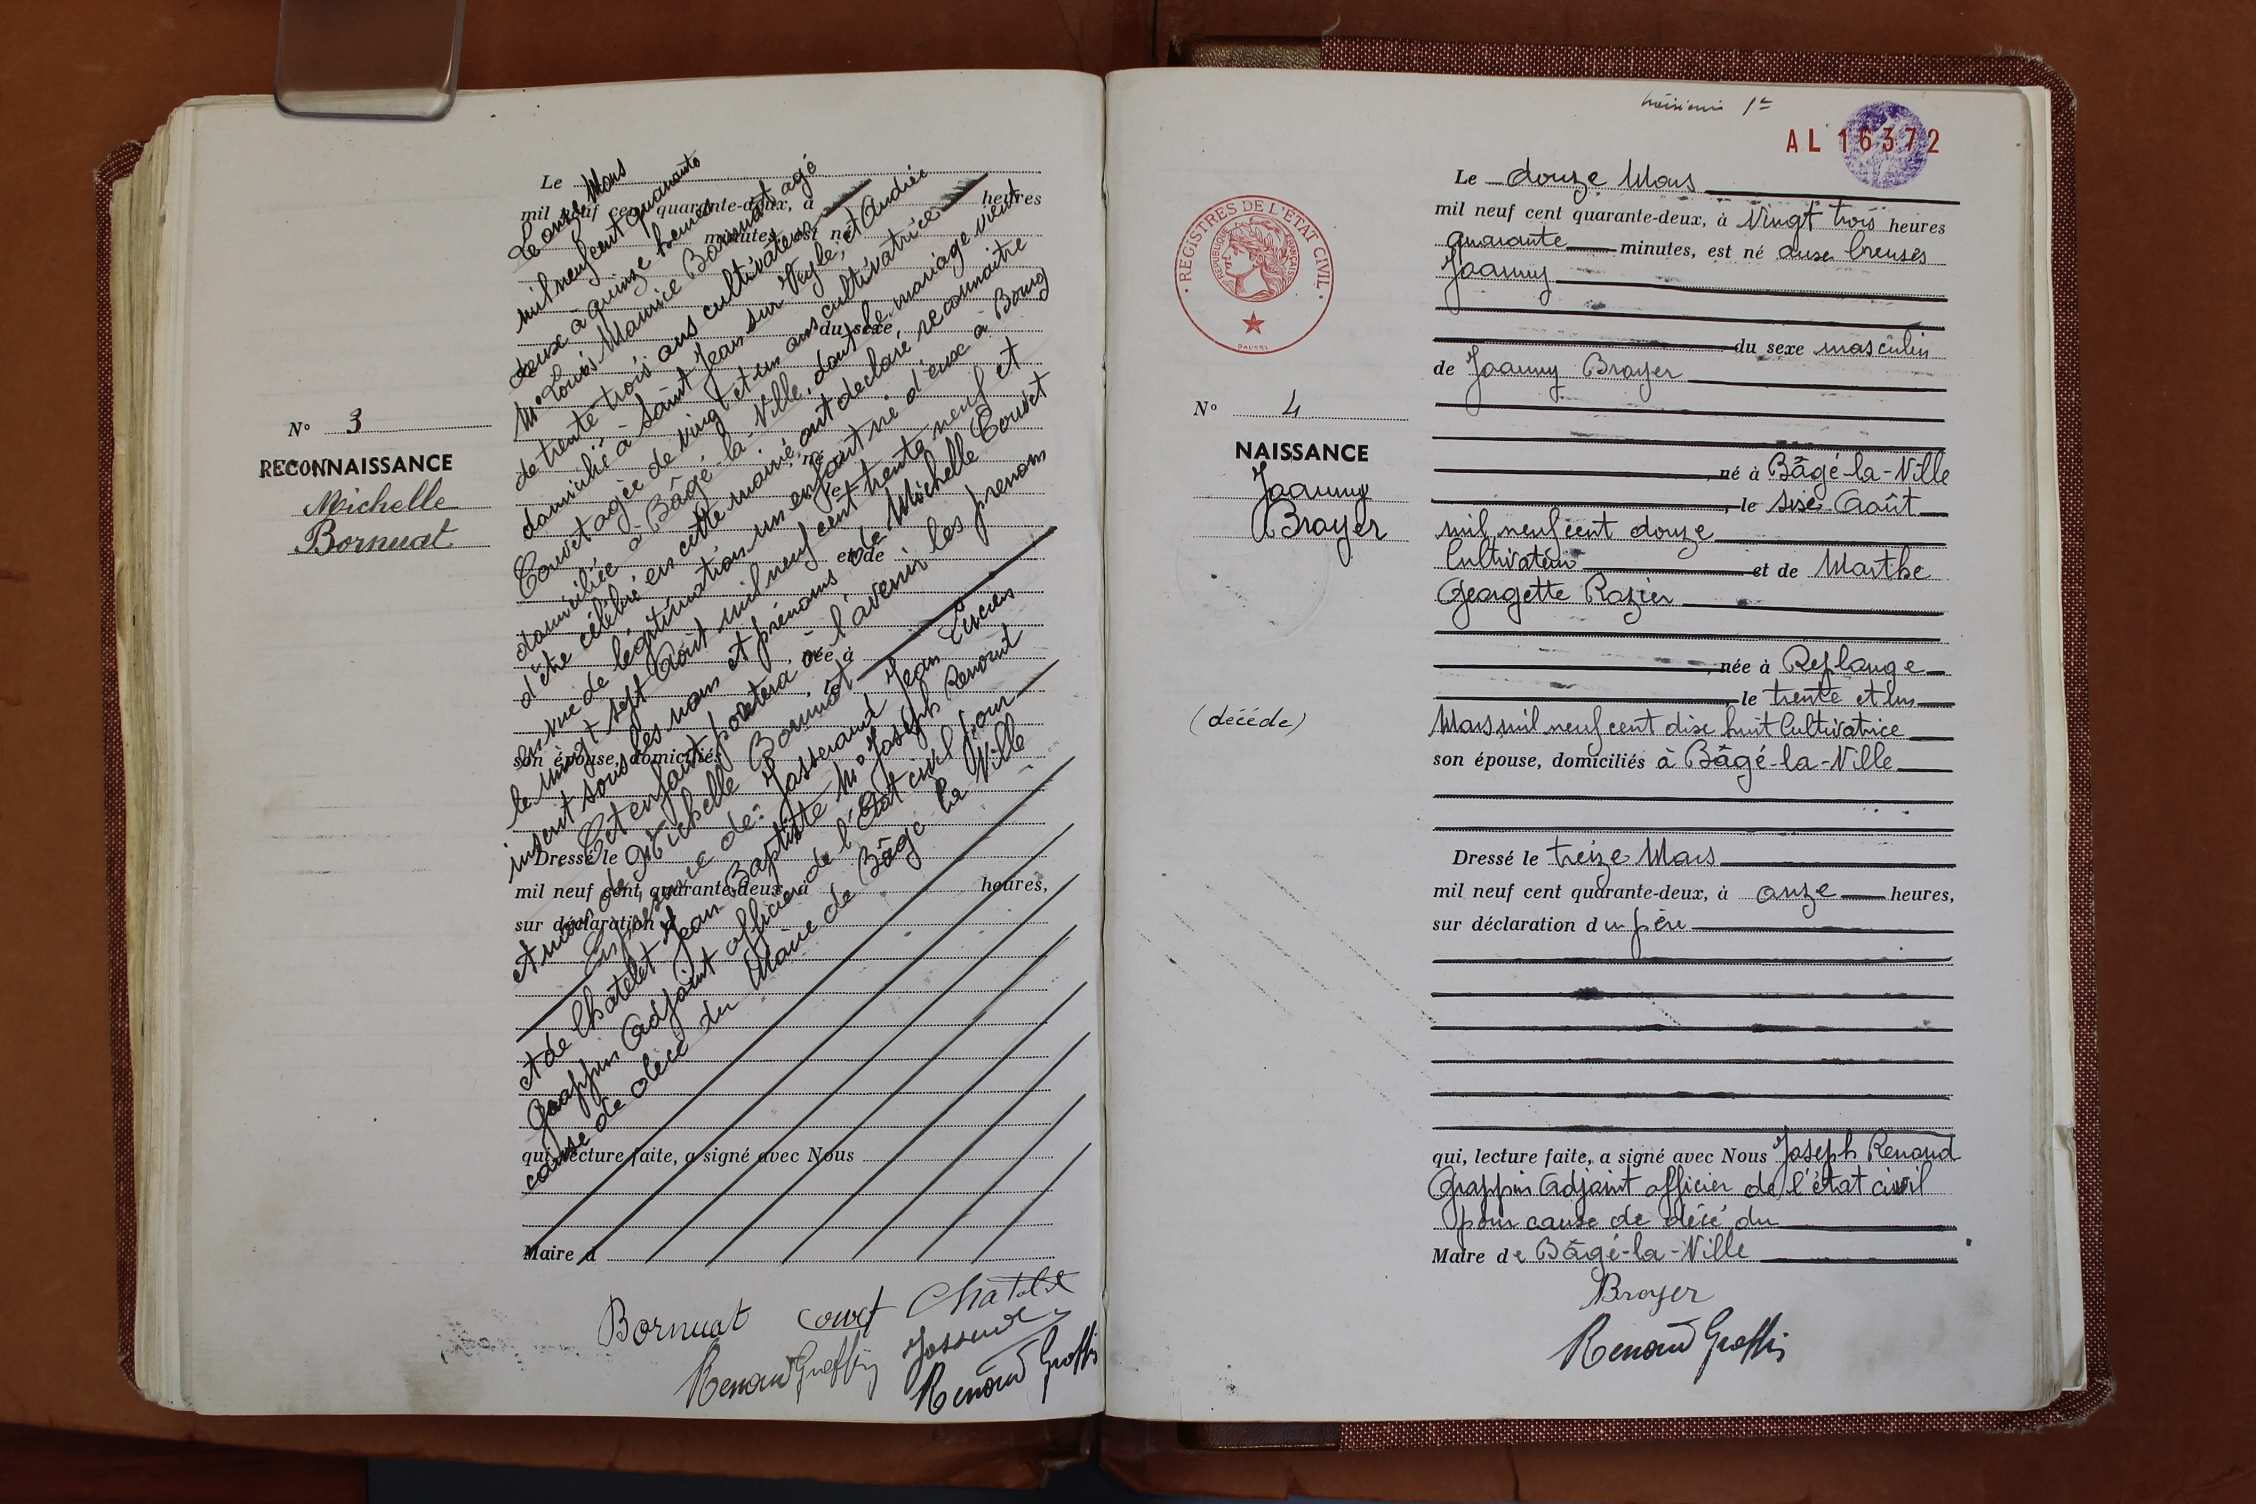 N° 3
RECONNAISSANCE
Michelle
Bornuat
Le
mil neuf cent quarante-deux, à heures
minutes, est né
du sexe
et de
née à
son épouse, domiciliés
Dressé le
mil neuf cent quarante-deux, à heures,
sur déclaration d
qui, lecture faite, a signé avec Nous
Maire d
Le onze Mars
mil neuf cent quarante
deux à quinze heures
Mr Louis Maurice Bornuat agé
de trente trois ans cultivateur
domicilié à Saint Jean sur Veyle, et Andrée
Couvet agée de vingt et un ans cultivatrice
domiciliée à Bâgé-la-Ville, dont le mariage vient
d'être célébré en cette mairie, ont déclaré reconnaitre
en vue de légitimation un enfant né d'eux à Bourg
le vingt sept Août mil neuf cent trente neuf et
inscrit sous les nom et prénoms de Michelle Couvet
Cet enfant portera à l'avenir les prenoms
et nom de Michelle Bornuat
En présence de: Josserand Jean Lucien
et de Chatelet Jean Baptiste Mr Joseph Renoud
Grappin Adjoint officier de l'Etat civil pour
cause de décé du Maire de Bâgé la Ville
Bornuat Couvet Chatelet
Renoud Graffin Josserand
Renoud Graffin
AL 16372
REGISTRES DE L'ETAT CIVIL
REPUBLIQUE FRANÇAISE
N° 4
NAISSANCE
Joanny
Broyer
(décéde)
Le douze Mars
mil neuf cent quarante-deux, à vingt trois heures
quarante minutes, est né aux Creuses
Joanny
du sexe masculin
de Joanny Broyer
, né à Bâgé-la-Ville
, le six Août
mil neuf cent douze
Cultivateur et de Marthe
Georgette Razier
, née à Replonge
, le trente et un
Mars mil neuf cent dix huit Cultivatrice
son épouse, domiciliés à Bâgé-la-Ville
Dressé le treize Mars
mil neuf cent quarante-deux, à onze heures,
sur déclaration du père
qui, lecture faite, a signé avec Nous Joseph Renoud
Grappin Adjoint officier de l'état civil
pour cause de décé du
Maire de Bâgé-la-Ville
Broyer
Renoud Graffin